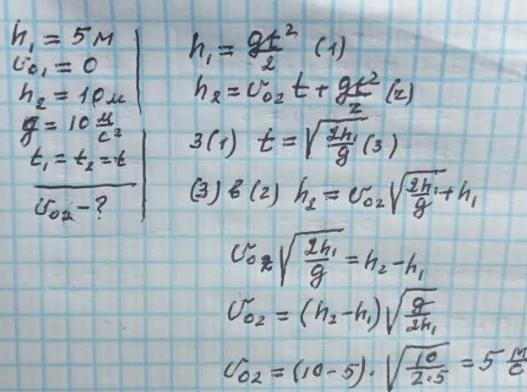 h₁ = 5 м
υ₀₁ = 0
h₂ = 10 м
g = 10 м/с²
t₁ = t₂ = t
υ₀₂ - ?
h₁ = gt²/2 (1)
h₂ = υ₀₂ t + gt²/2 (2)
З (1) t = √(2h₁/g) (3)
(3) в (2) h₂ = υ₀₂ √(2h₁/g) + h₁
υ₀₂ √(2h₁/g) = h₂ - h₁
υ₀₂ = (h₂ - h₁) √(g/2h₁)
υ₀₂ = (10 - 5) · √(10/2·5) = 5 м/с